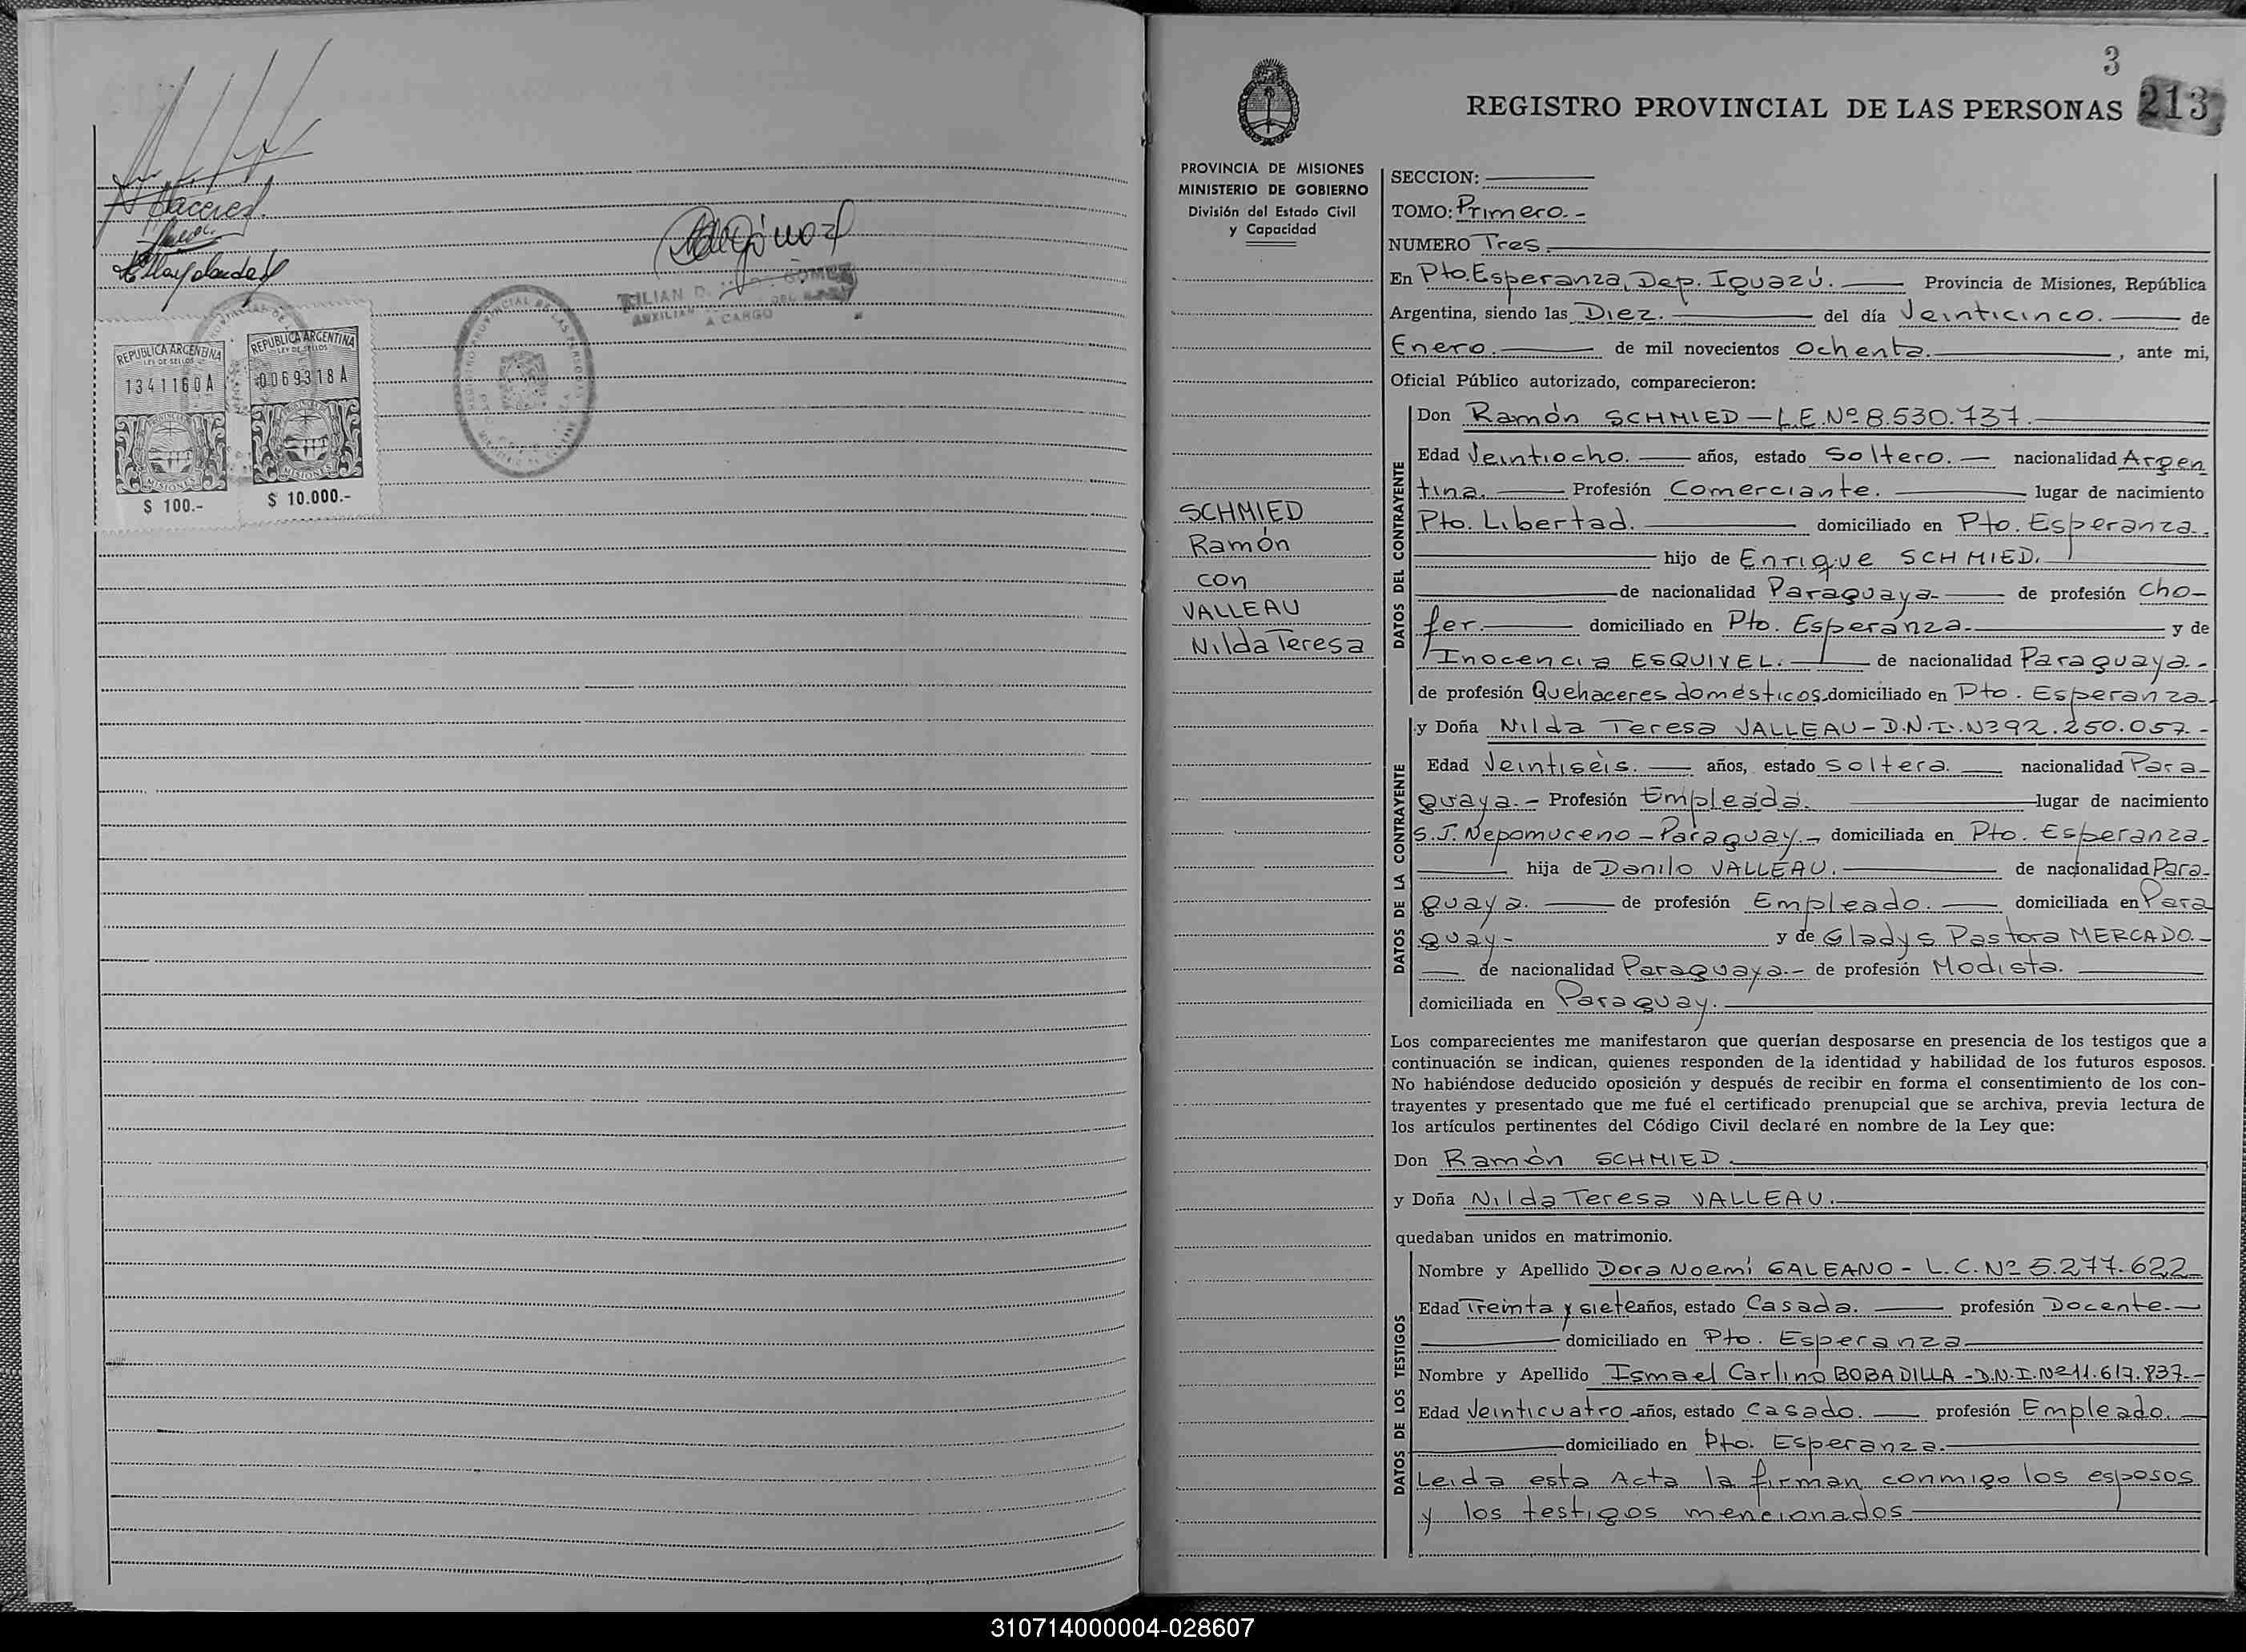 Caceres
REPUBLICA ARGENTINA
LEY DE SELLOS
1341160A
MISIONES
$ 100.-
REPUBLICA ARGENTINA
LEY DE SELLOS
0069318A
MISIONES
$ 10.000.-
LILIAN D. GOMEZ
AUXILIAR
A CARGO
3
213
REGISTRO PROVINCIAL DE LAS PERSONAS
PROVINCIA DE MISIONES
MINISTERIO DE GOBIERNO
División del Estado Civil
y Capacidad
SCHMIED
Ramón
con
VALLEAU
Nilda Teresa
SECCION:
TOMO: Primero.-
NUMERO Tres.
En Pto. Esperanza, Dep. Iguazú. Provincia de Misiones, República
Argentina, siendo las Diez. del día Veinticinco. de
Enero. de mil novecientos Ochenta. , ante mi,
Oficial Público autorizado, comparecieron:
DATOS DEL CONTRAYENTE
Don Ramón SCHMIED — L.E. Nº 8.530.737.
Edad Veintiocho. años, estado Soltero. — nacionalidad Argen
tina. Profesión Comerciante. lugar de nacimiento
Pto. Libertad. domiciliado en Pto. Esperanza.
hijo de Enrique SCHMIED.
de nacionalidad Paraguaya. de profesión Cho-
fer. domiciliado en Pto. Esperanza. y de
Inocencia ESQUIVEL. de nacionalidad Paraguaya.-
de profesión Quehaceres domésticos. domiciliado en Pto. Esperanza.
DATOS DE LA CONTRAYENTE
y Doña Nilda Teresa VALLEAU - D.N.I. Nº 92.250.057.-
Edad Veintiséis. años, estado soltera. nacionalidad Para-
guaya.- Profesión Empleada. lugar de nacimiento
S.J. Nepomuceno - Paraguay.- domiciliada en Pto. Esperanza.
hija de Danilo VALLEAU. de nacionalidad Para-
guaya. de profesión Empleado. domiciliada en Para
guay- y de Gladys Pastora MERCADO.-
de nacionalidad Paraguaya.- de profesión Modista.
domiciliada en Paraguay.
Los comparecientes me manifestaron que querían desposarse en presencia de los testigos que a
continuación se indican, quienes responden de la identidad y habilidad de los futuros esposos.
No habiéndose deducido oposición y después de recibir en forma el consentimiento de los con-
trayentes y presentado que me fué el certificado prenupcial que se archiva, previa lectura de
los artículos pertinentes del Código Civil declaré en nombre de la Ley que:
Don Ramón SCHMIED
y Doña Nilda Teresa VALLEAU.
quedaban unidos en matrimonio.
DATOS DE LOS TESTIGOS
Nombre y Apellido Dora Noemí GALEANO - L.C. Nº 5.277.622
Edad Treinta y siete años, estado Casada. profesión Docente.
domiciliado en Pto. Esperanza.
Nombre y Apellido Ismael Carlino BOBADILLA - D.N.I. Nº 11.617.837.-
Edad Veinticuatro años, estado Casado. profesión Empleado.
domiciliado en Pto. Esperanza.
Leida esta Acta la firman conmigo los esposos
y los testigos mencionados
310714000004-028607